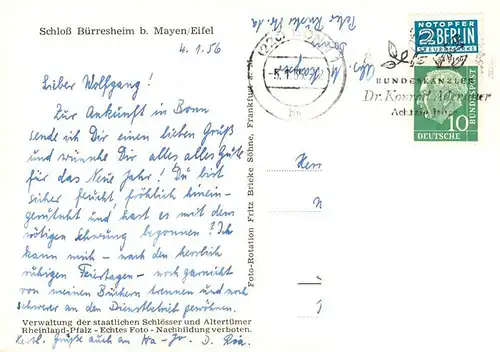 Schloß Bürresheim b. Mayen/Eifel
4.1.56
Lieber Wolfgang!
Zur Ankunft in Bonn
sende ich Dir einen lieben Gruß
und wünsche Dir alles alles Gute
für das Neue Jahr! Du bist
sicher feucht, fröhlich hinein-
gerutscht und hast es mit dem
nötigen Schwung begonnen! Ich
kann mich - nach den herrlich
ruhigen Feiertagen - noch garnicht
von meinen Büchern trennen und noch
schwerer an den Dienstbetrieb gewöhnen.
Verwaltung der staatlichen Schlösser und Altertümer
Rheinland-Pfalz - Echtes Foto - Nachbildung verboten.
Herzl. Grüße auch an Ha-Jo. D.
Foto-Rotation Fritz Bricke Söhne, Frankfurt a. M.
Abs.
BONN
NOTOPFER
2 BERLIN
STEUERMARKE
BUNDESKANZLER
Dr. Konrad Adenauer
DEUTSCHE
BUNDESPOST
10
Herr